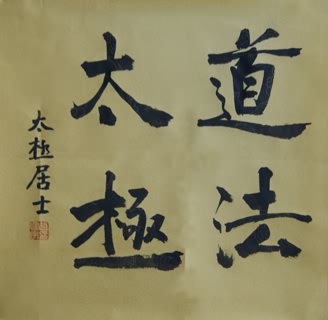 道法
太極
太极居士